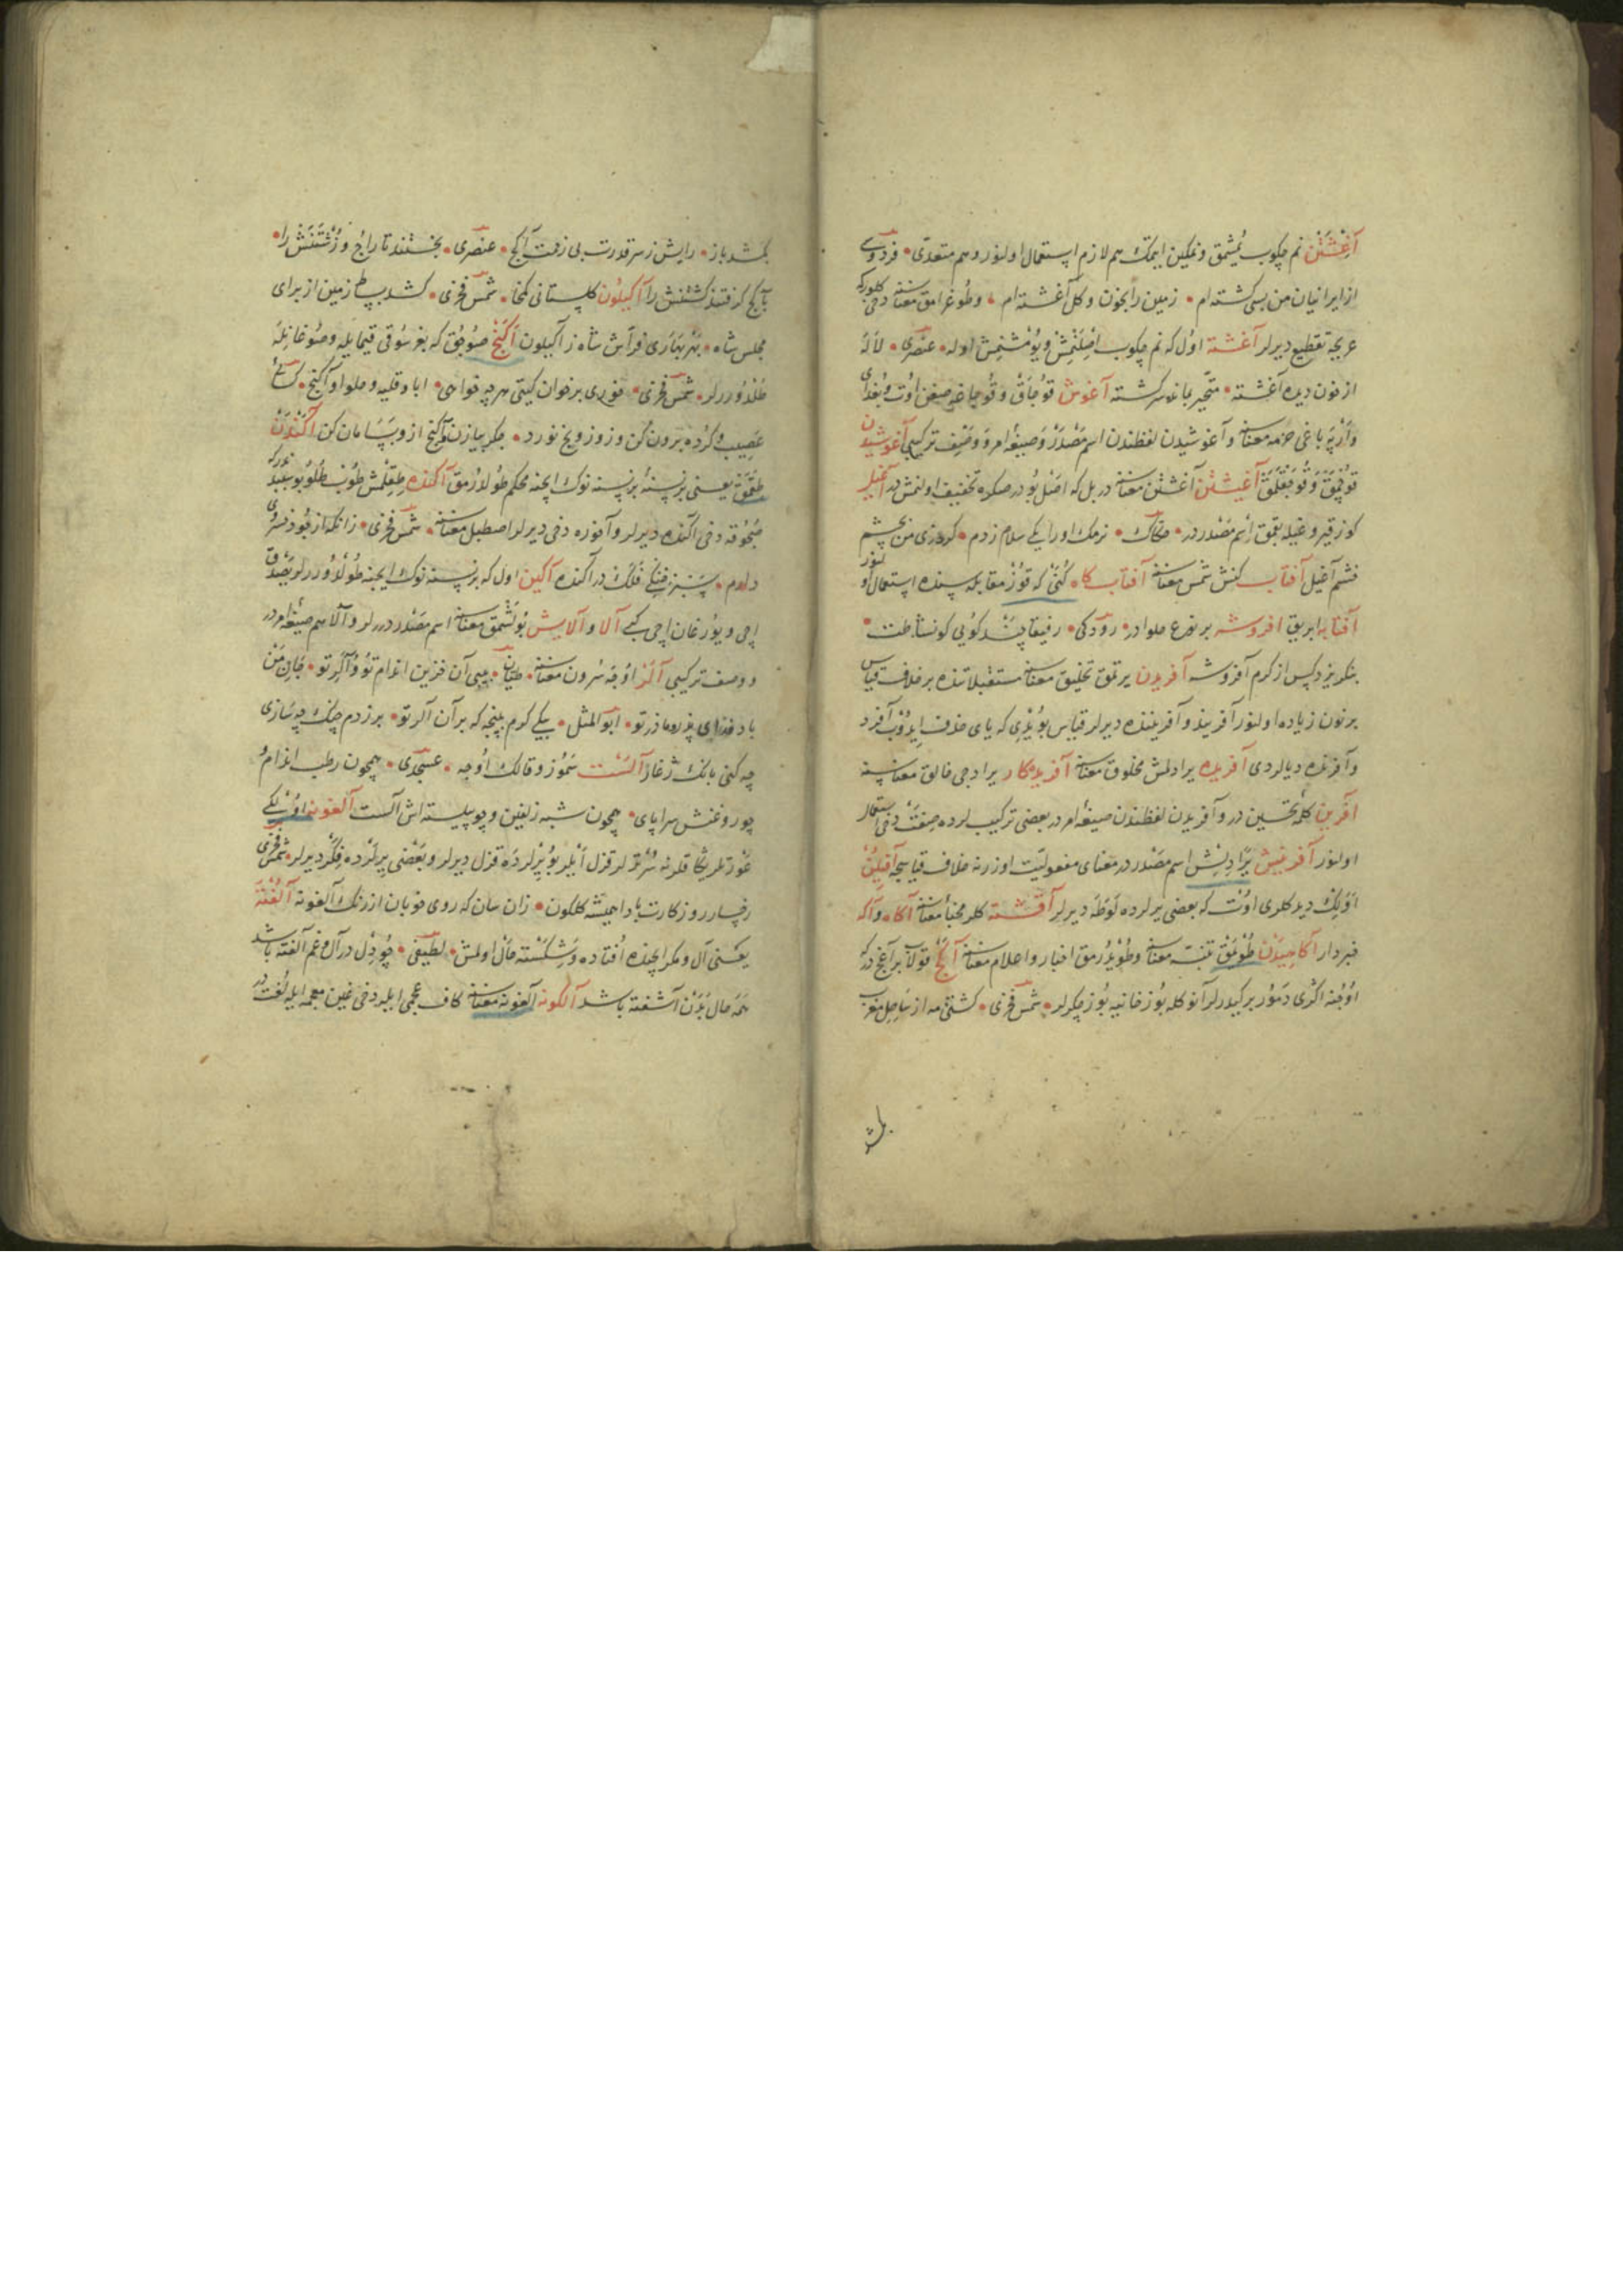 آغشتن نم چكوب يمشمق ونمكين ايتمك هم لازم استعمال اولنور وهم متعدى فردوسى
از ايرانيان من بسى كشته ام زمين را بخون وكل آغشته ام وطوغرامق معناسنه دخى كلور كه
عربجه تقطيع ديرلر آغشته اول كه نم چكوب اصلنمش ويومشنمش اوله عنصرى لاله
از خون ديده آغشته متحير بمانده سركشته آغوش قوجاق وقوجاغه صيغن اوت وبغداى
وارپه باغى حزمه معناسنه وآغوشيدن لفظندن اسم مصدر وصيغه امر ووصف تركيبى آغوشيدن
قوچمق وقوجقلمق آغيشتن آغشتن معناسنه در بل كه اصل بودر صكره تخفيف اولنمش در آغيل
كوز قيروغيله بقمق اسم مصدر در حكاك نرمك اورايكى سلام زدم كرد زى من بچشم
خشم آغيل آفتاب كنش شمس معناسنه آفتاب كا كنى كه قوز مقابله سنده استعمال اولنور
آفتابه ابريق افروشه بر نوع حلوادر رودكى رفيقا چند كويى كو نشاطت
بنكريزد كس از كرم آفروشه آفريدن يرتمق تخليق معناسنه مستقبلاتنده بر خلاف قياس
بر نون زياده اولنور آفريند وآفريننده ديرلر قياس بويدى كه ياى حذف ايدوب آفرد
وآفرنده ديالردى آفريده يرادلمش مخلوق معناسنه آفريدكار يراديجى خالق معناسنه
آفرين كلمه تحسين در وآفريدن لفظندن صيغه امر در بعضى تركيب لرده صفت دخى استعمال
اولنور آفرينش يرادلش اسم مصدر در معناى مفعوليت اوزرنه خلاف قياسجه
ديد كلرى اوت كه بعضى يرلرده لوطه ديرلر معناسنه آكا وآكه
خبردار آكاهيدن طويمق تنبه معناسنه وطويرمق اخبار واعلام معناسنه آكج قولاب بر آغج در كه
اوجنه اكرى دمور بر كيدرلر آنوكله بوز خانيه بوز چكرلر شمس فخرى كشتى مه از ساحل مغرب
بكشد
بكشد باز رايش ز سر قدرت بى زحمت آكج عنصرى بجستند تاراج وزشتنش را
بآكج كرفتند كشتنش را آكيلون كلستانى كمخا شمس فخرى كشد بسطا زمين از براى
مجلس شاه بهر بهارى فراش شاه ز آكيلون آكنج صوجق كه بغرسوقى قيمايله وصوغانله
طلدوررلر شمس فخرى خورى بر خوان كيتى هر چه خواهى ابا وقليه وحلوا وآكنج كسائى
عصيب وكرده برون كن وزو زونج نورد جكر بيازن وآكنج از وبسامان كن آكندن
طقمق يعنى بر نسنه بر نسنه نوك ايچنه محكم طولدرمق آكنده طقلمش طوب طلو
دخى آكنده ديرلر وآخوره دخى ديرلر اصطبل معناسنه شمس فخرى زانكه از جود خسروى
دارم در آكنده آكين اول كه بر نسنه نوك ايچنه طولدوررلر يصدق
ايچى ويورغان ايچى كبى آلا وآلايش بولشمق معناسنه اسم مصدر در ديرلر وآلا هم صيغه امر در
ووصف تركيبى آلر اوجه سرون معناسنه طيان بيى آن خزين اندام تو وآلر تو
باد تو ابو المثل بيكى كرم پنجه كه بر آن آلر تو بر زدم چنك چه سازى
چه كنى بانك ژغار آلست سموز وقالك اوجه عسجدى همچون رطب اندام
چو روغنش سراپاى همچون شبه زلفين وچو پيليسته اش آلست آلغونه اوكلى كه
عورتلر يكاقلرنه سورتلر قزل ايلر بويرلرده قزل ديرلر وبعضى يرلرده ديرلر شمس فخرى
رخسار روزكارت بادا هميشه كلكون زان سان كه روى خوبان از رنك آلغونه آلفته
يعنى آل ومكر ايچنده افتاده وشكسته حال اولمش لطيفى چو دل در آل وغم آلفته باشد
همه حال بدن آشفته باشد آلكونه آلغونه معناسنه كاف عجمى ايله دخى غين معجمه ايله لغت در